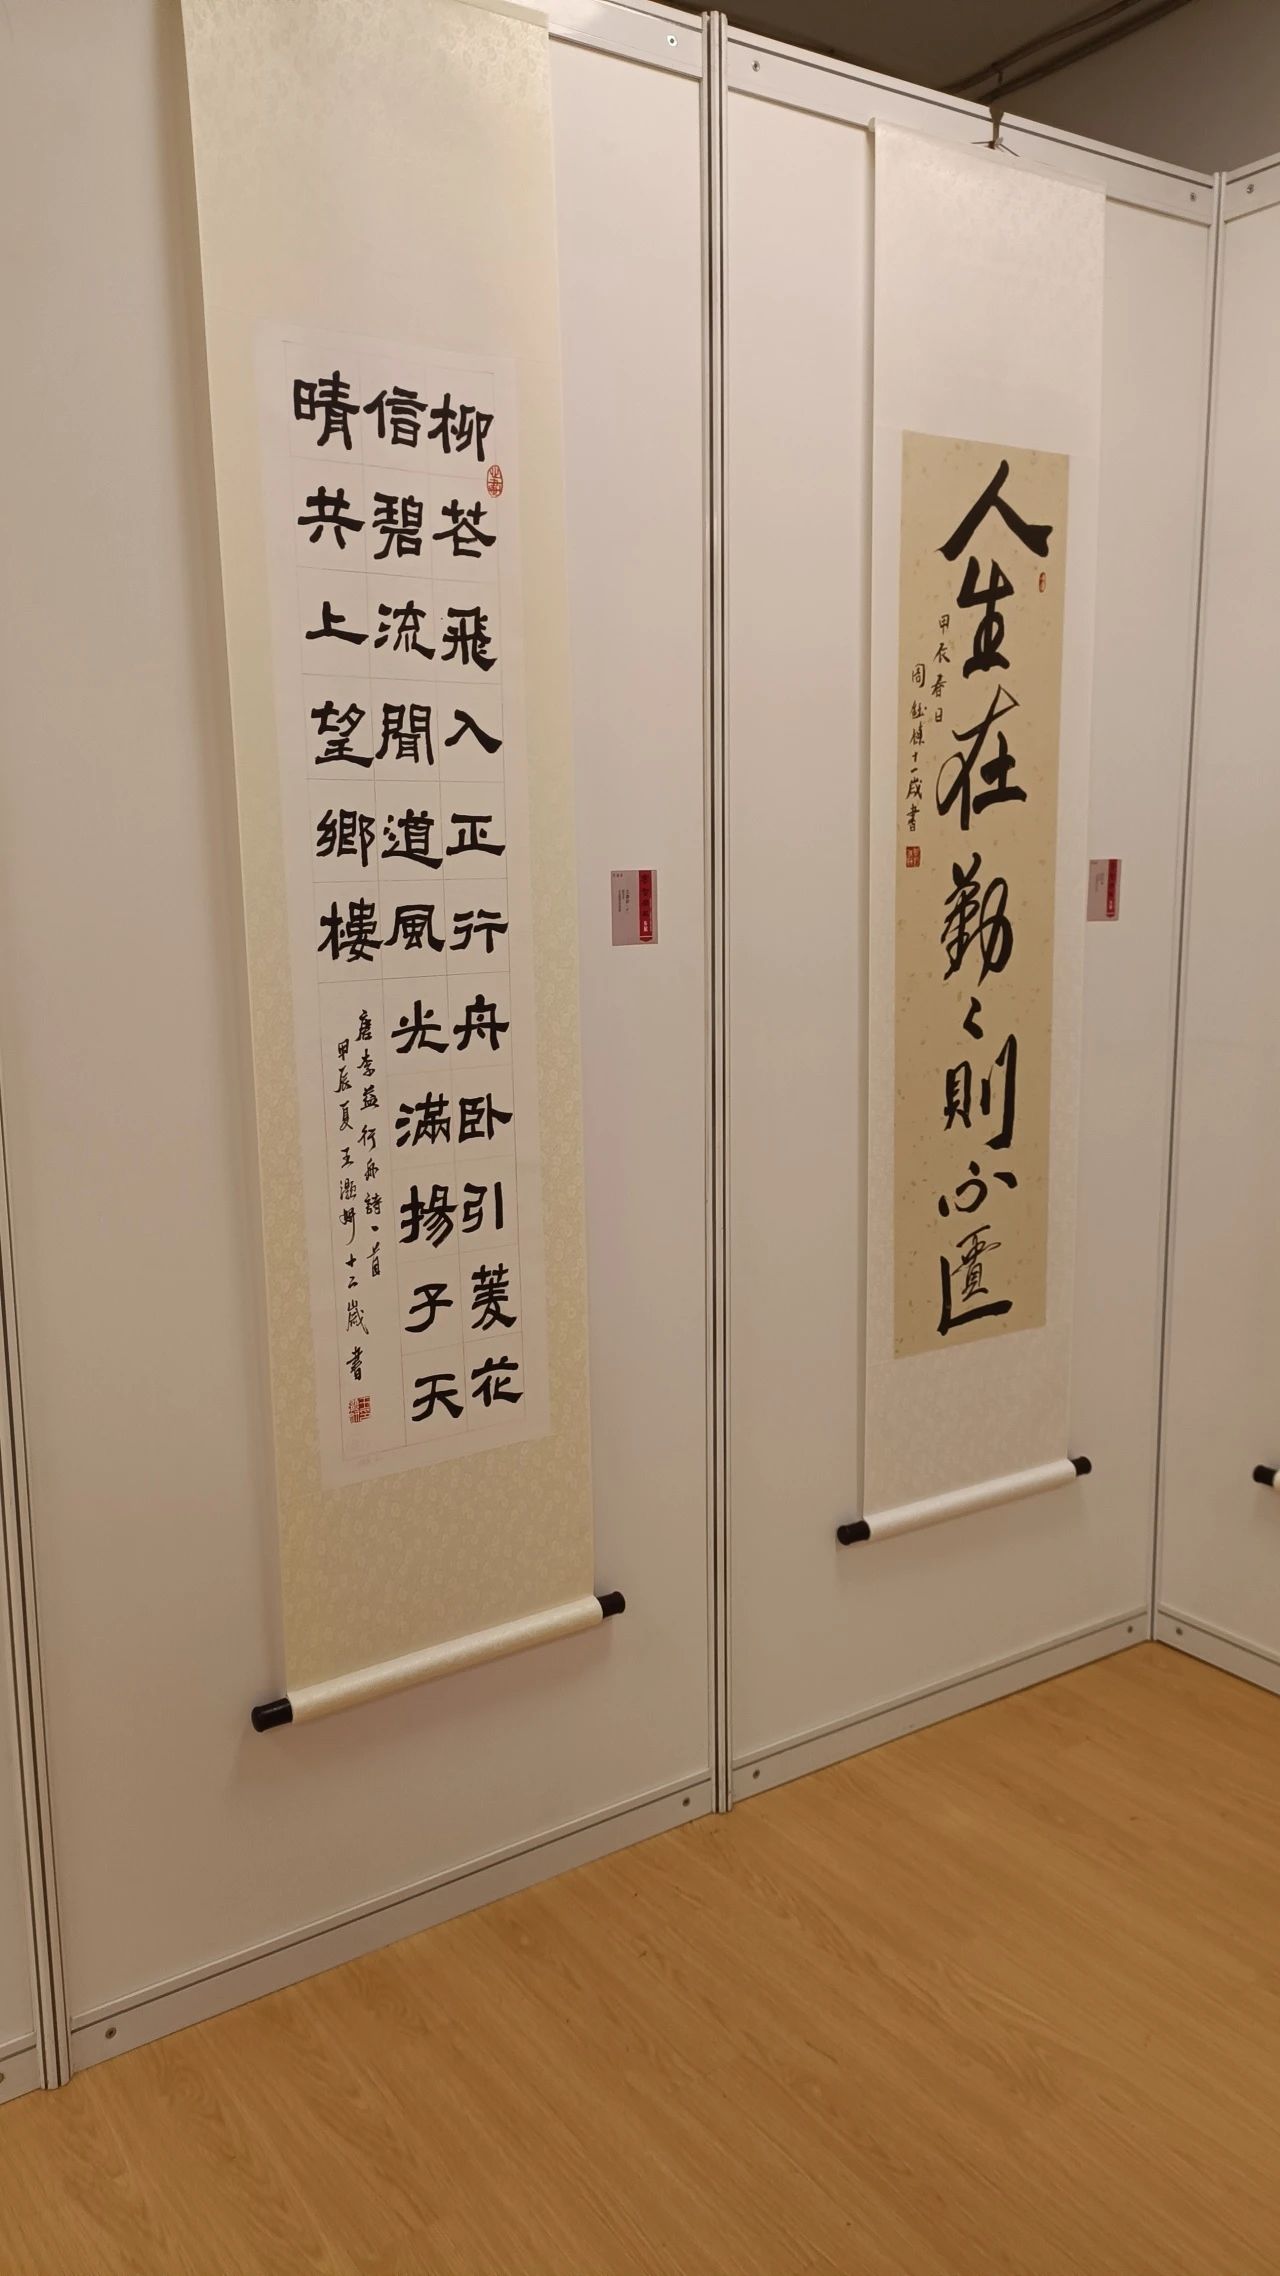 柳芲飛入正行舟卧引菱花
信碧流聞道風光滿揚子天
晴共上望鄉樓
唐李益行舟詩一首
甲辰夏王灝妍十二歲書
人生在勤〻則不匱
甲辰春日
周鈺棟十一歲書